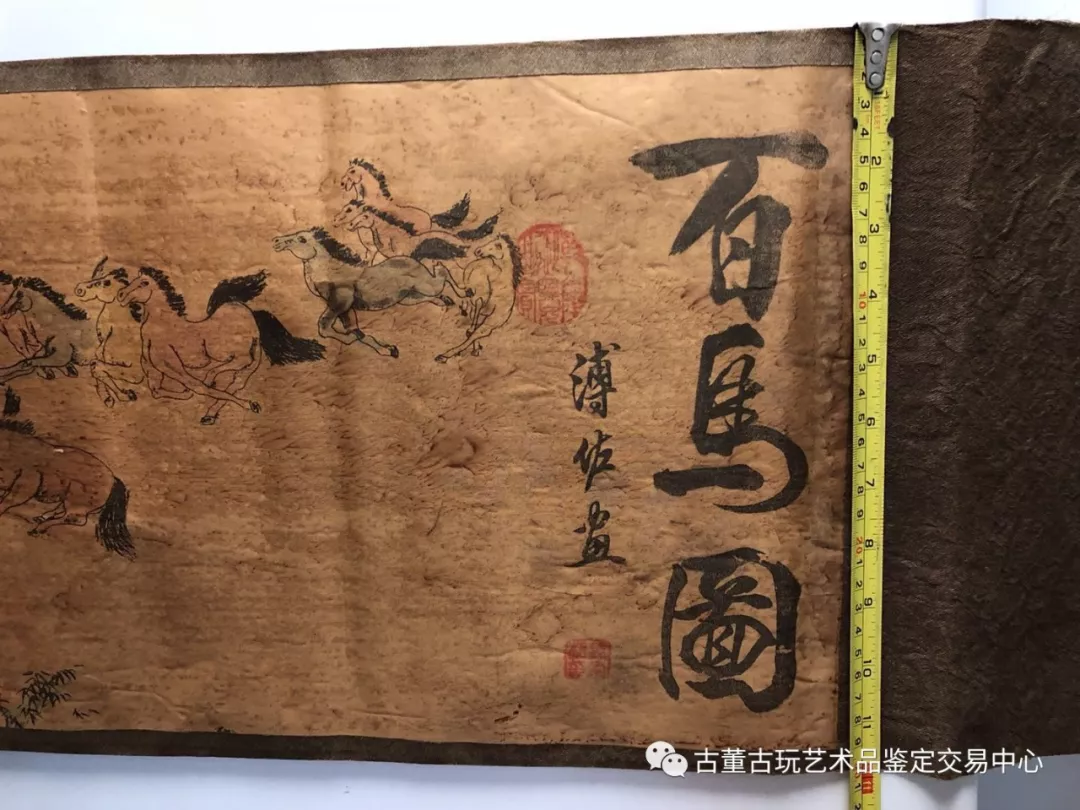 百馬圖
溥佐画
古董古玩艺术品鉴定交易中心